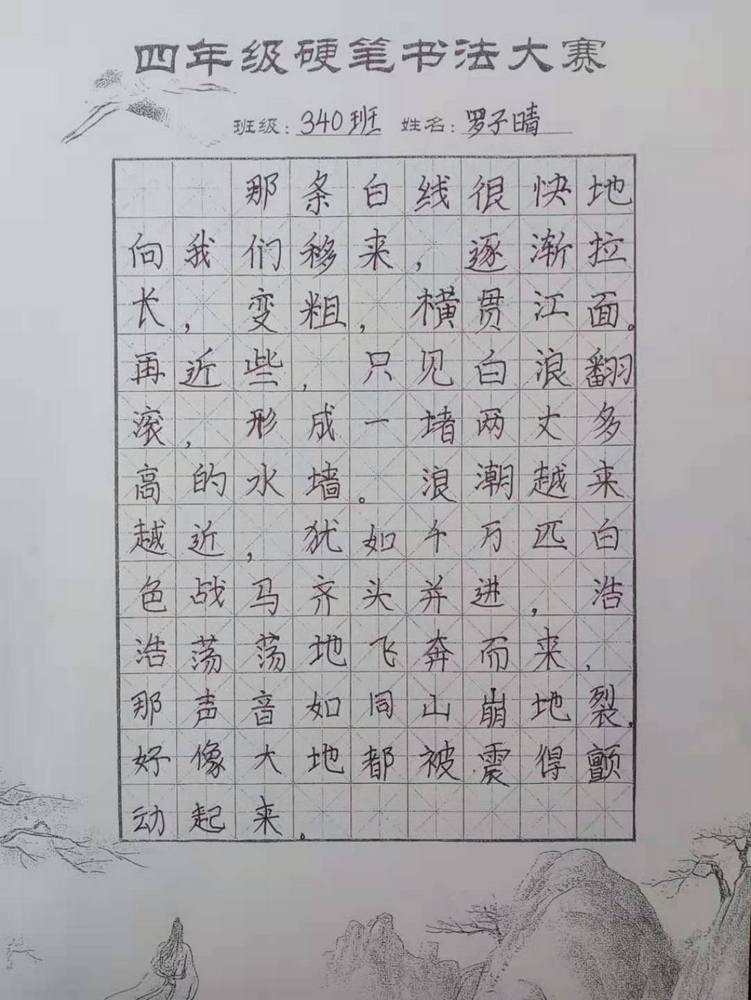 四年级硬笔书法大赛
班级：340班 姓名：罗子晴
那条白线很快地
向我们移来，逐渐拉
长，变粗，横贯江面。
再近些，只见白浪翻
滚，形成一堵两丈多
高的水墙。浪潮越来
越近，犹如千万匹白
色战马齐头并进，浩
浩荡荡地飞奔而来，
那声音如同山崩地裂，
好像大地都被震得颤
动起来。